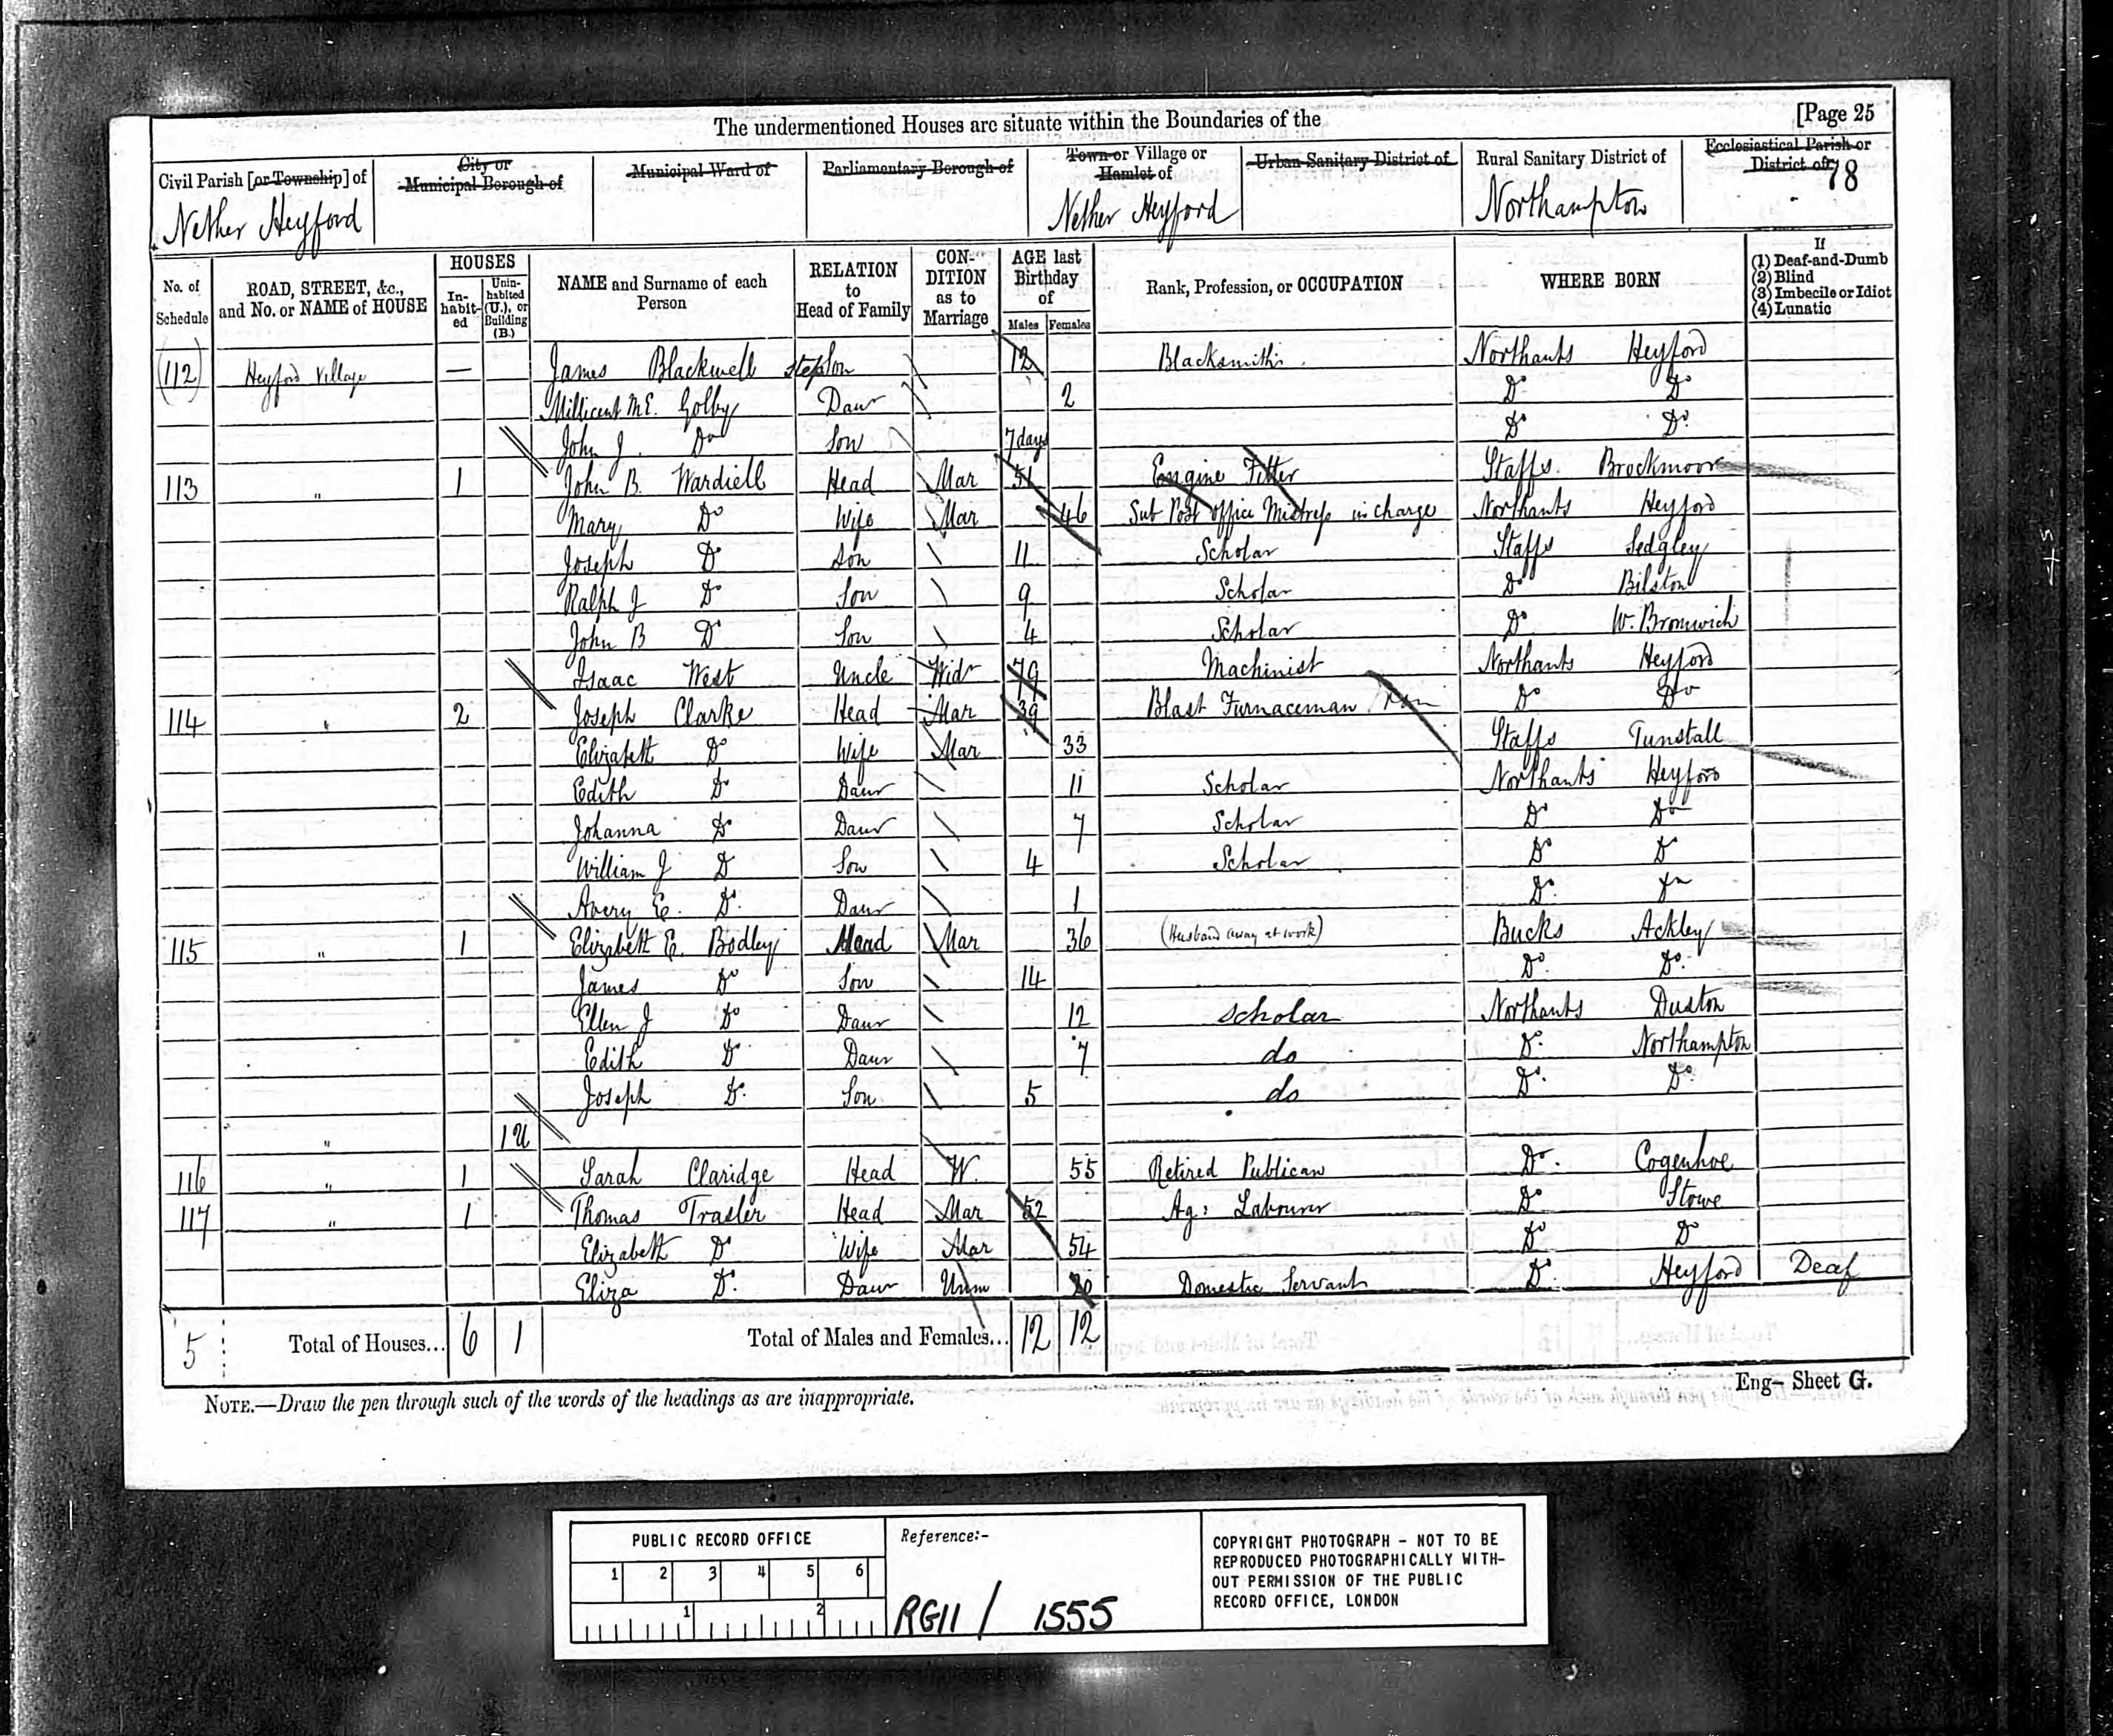 The undermentioned Houses are situate within the Boundaries of the [Page 25
Civil Parish [or Township] of City or Municipal Borough of Municipal Ward of Parliamentary Borough of Town or Village or Hamlet of Urban Sanitary District of Rural Sanitary District of Ecclesiastical Parish or District of
Nether Heyford Nether Heyford Northampton 78
No. of Schedule ROAD, STREET, &c., and No. or NAME of HOUSE HOUSES In-habit-ed Unin-habited (U.), or Building (B.) NAME and Surname of each Person RELATION to Head of Family CON-DITION as to Marriage AGE last Birthday of Males Females Rank, Profession, or OCCUPATION WHERE BORN If (1) Deaf-and-Dumb (2) Blind (3) Imbecile or Idiot (4) Lunatic
(112) Heyford Village — James Blackwell stepson 12 Blacksmith Northants Heyford
Millicent M E. Golby Daur 2 Do Do
John J. Do Son 7 days Do Do
113 " 1 John B. Wardiell Head Mar 51 Engine Fitter Staffs. Brockmoor
Mary Do Wife Mar 46 Sub Post office Mistress in charge Northants Heyford
Joseph Do Son 11 Scholar Staffs Sedgley
Ralph J Do Son 9 Scholar Do Bilston
John B Do Son 4 Scholar Do W. Bromwich
Isaac West Uncle Widr 79 Machinist Northants Heyford
114 " 2 Joseph Clarke Head Mar 39 Blast Furnaceman Iron Do Do
Elizabeth Do Wife Mar 33 Staffs Tunstall
Edith Do Daur 11 Scholar Northants Heyford
Johanna Do Daur 7 Scholar Do Do
William J Do Son 4 Scholar Do Do
Avery E. Do Daur 1 Do Do
115 " 1 Elizabeth E. Bodley Head Mar 36 (Husband away at work) Bucks Ackley
James Do Son 14 Do Do
Ellen J Do Daur 12 Scholar Northants Duston
Edith Do Daur 7 do Do Northampton
Joseph Do Son 5 do Do Do
" 1 U
116 " 1 Sarah Claridge Head W. 55 Retired Publican Do Cogenhoe
117 " 1 Thomas Trasler Head Mar 52 Ag: Labourer Do Stowe
Elizabeth Do Wife Mar 54 Do Do
Eliza Do Daur Unm 20 Domestic Servant Do Heyford Deaf
5 Total of Houses... 6 1 Total of Males and Females... 12 12
NOTE.—Draw the pen through such of the words of the headings as are inappropriate.
Eng– Sheet G.
PUBLIC RECORD OFFICE
1 2 3 4 5 6
1 2
Reference:-
RG11 / 1555
COPYRIGHT PHOTOGRAPH - NOT TO BE
REPRODUCED PHOTOGRAPHICALLY WITH-
OUT PERMISSION OF THE PUBLIC
RECORD OFFICE, LONDON